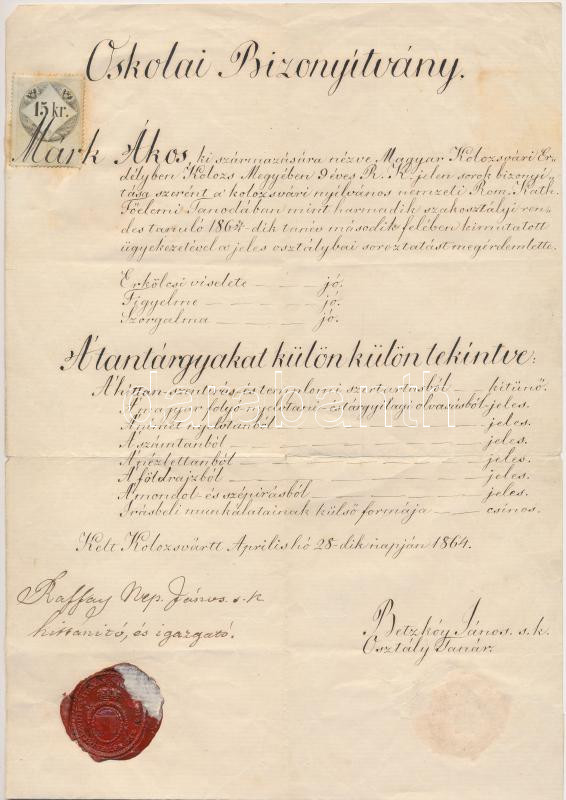 Oskolai Bizonyítvány.
15 kr.
Márk Ákos, ki származására nézve Magyar Kolozsvári Er-
délyben Kolozs Megyében 9 éves R. K. jelen sorok bizonyí-
tása szerént a kolozsvári nyilvános nemzeti Rom. Kath.
Főelemi Tanodában mint harmadik szakosztályi ren-
des tanuló 1864-dik tanév második felében kimutatott
ügyekezetével a jeles osztálybai soroztatást megérdemlette.
Erkölcsi viselete — — — jó.
Figyelme — — — jó.
Szorgalma — — — jó.
A tantárgyakat külön külön tekintve:
A hittan-szentírás és templomi szertartásból — kitünő.
A magyar folyó nyelvtani- és tárgyilagi olvasásból - jeles.
A német nyelvtanból — jeles.
A számtanból — jeles.
A nézlettanból — jeles.
A földrajzból — jeles.
A mondol- és szépirásból — jeles.
Irásbeli munkálatainak külső formája — csinos.
Kelt Kolozsvártt Aprilis hó 28-dik napján 1864.
Raffay Nep. János s. k.
hittanító, és igazgató.
Betzkóy János. s. k.
Osztály Tanár.
darabanth